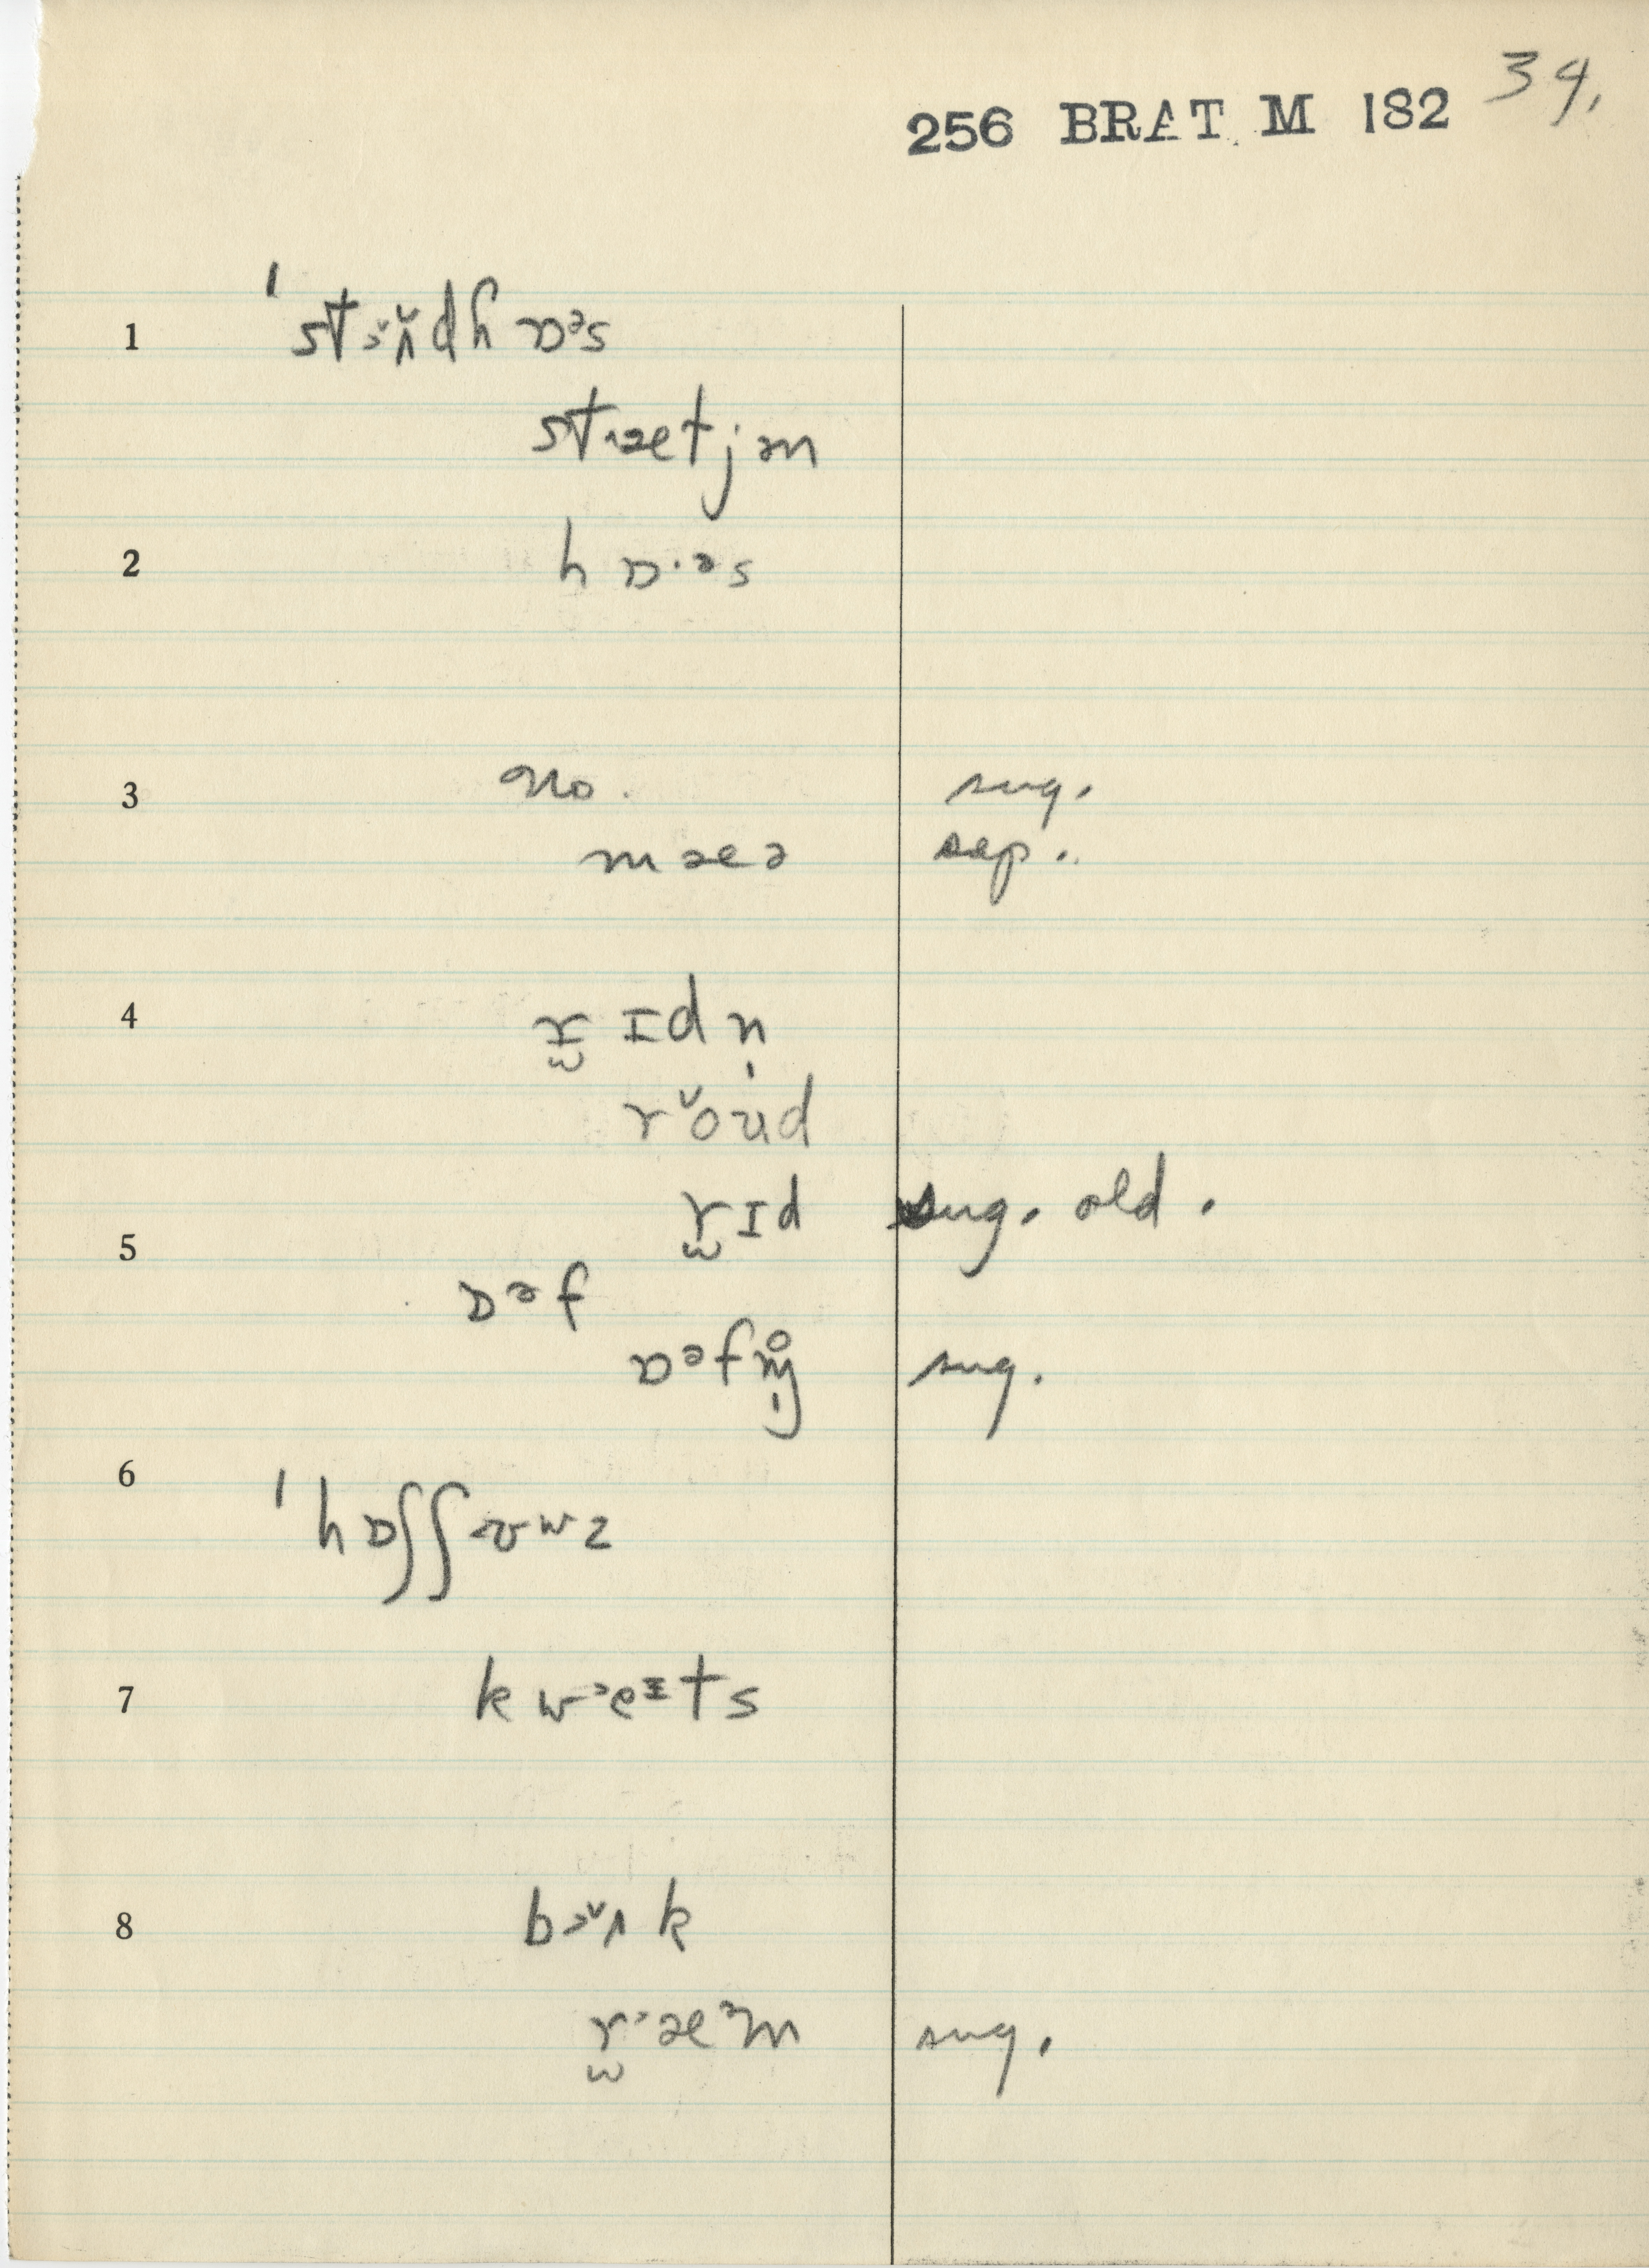 34.
256 BRAT M 182
1 ˈstɜ̆ʌ̆dhɒᵊs
stɹætjən
2 hɒ·ᵊs
3 no. sug.
mæə sep.
4 r̫ɪdn̩
rŏʊd
r̫ɪd sug. old.
5
ɒᵊf
ɒᵊfn̩ sug.
6
ˈhɒʃʃʊwz
7 kwᵊeᶦts
8 bɜ̆ʌk
r̫ᵊæᵊm sug.